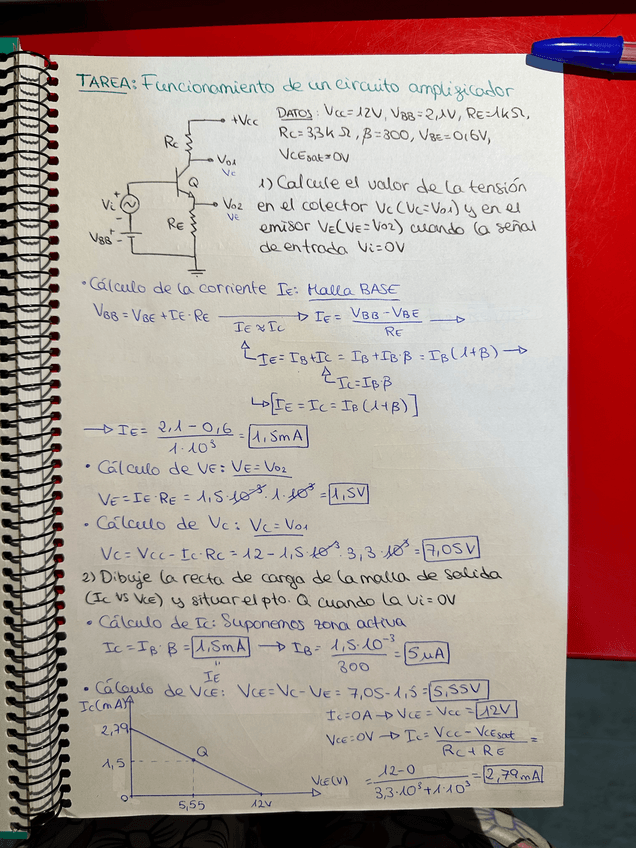 TAREA: Funcionamiento de un circuito amplificador
DATOS: Vcc=12V, VBB=2,1V, RE=1kΩ,
RC=3,3kΩ, β=300, VBE=0,6V,
VCEsat≈0V
+Vcc
Rc
Vo1
Vc
Q
Vo2
VE
RE
Vi
+
-
VBB
+
-
1) Calcule el valor de la tensión
en el colector Vc (Vc=Vo1) y en el
emisor VE (VE=Vo2) cuando la señal
de entrada Vi=0V
• Cálculo de la corriente IE: Malla BASE
VBB = VBE + IE·RE → IE = (VBB - VBE)/RE →
IE ≈ Ic
IE = IB + Ic = IB + IB·β = IB(1+β) →
Ic = IB·β
↳[IE = Ic = IB(1+β)]
→ IE = (2,1 - 0,6)/(1·10³) = 1,5mA
• Cálculo de VE: VE = Vo2
VE = IE·RE = 1,5·10⁻³·1·10³ = 1,5V
• Cálculo de Vc: Vc = Vo1
Vc = Vcc - Ic·Rc = 12 - 1,5·10⁻³·3,3·10³ = 7,05V
2) Dibuje la recta de carga de la malla de salida
(Ic vs VCE) y situar el pto. Q cuando la Vi=0V
• Cálculo de Ic: Suponemos zona activa
Ic = IB·β = 1,5mA → IB = (1,5·10⁻³)/300 = 5μA
"
IE
• Cálculo de VCE: VCE = Vc - VE = 7,05 - 1,5 = 5,55V
Ic = 0A → VCE = Vcc = 12V
VCE = 0V → Ic = (Vcc - VCEsat)/(Rc + RE) =
= (12-0)/(3,3·10³+1·10³) = 2,79mA
Ic(mA)
2,79
1,5
Q
0
5,55
12V
VCE(V)